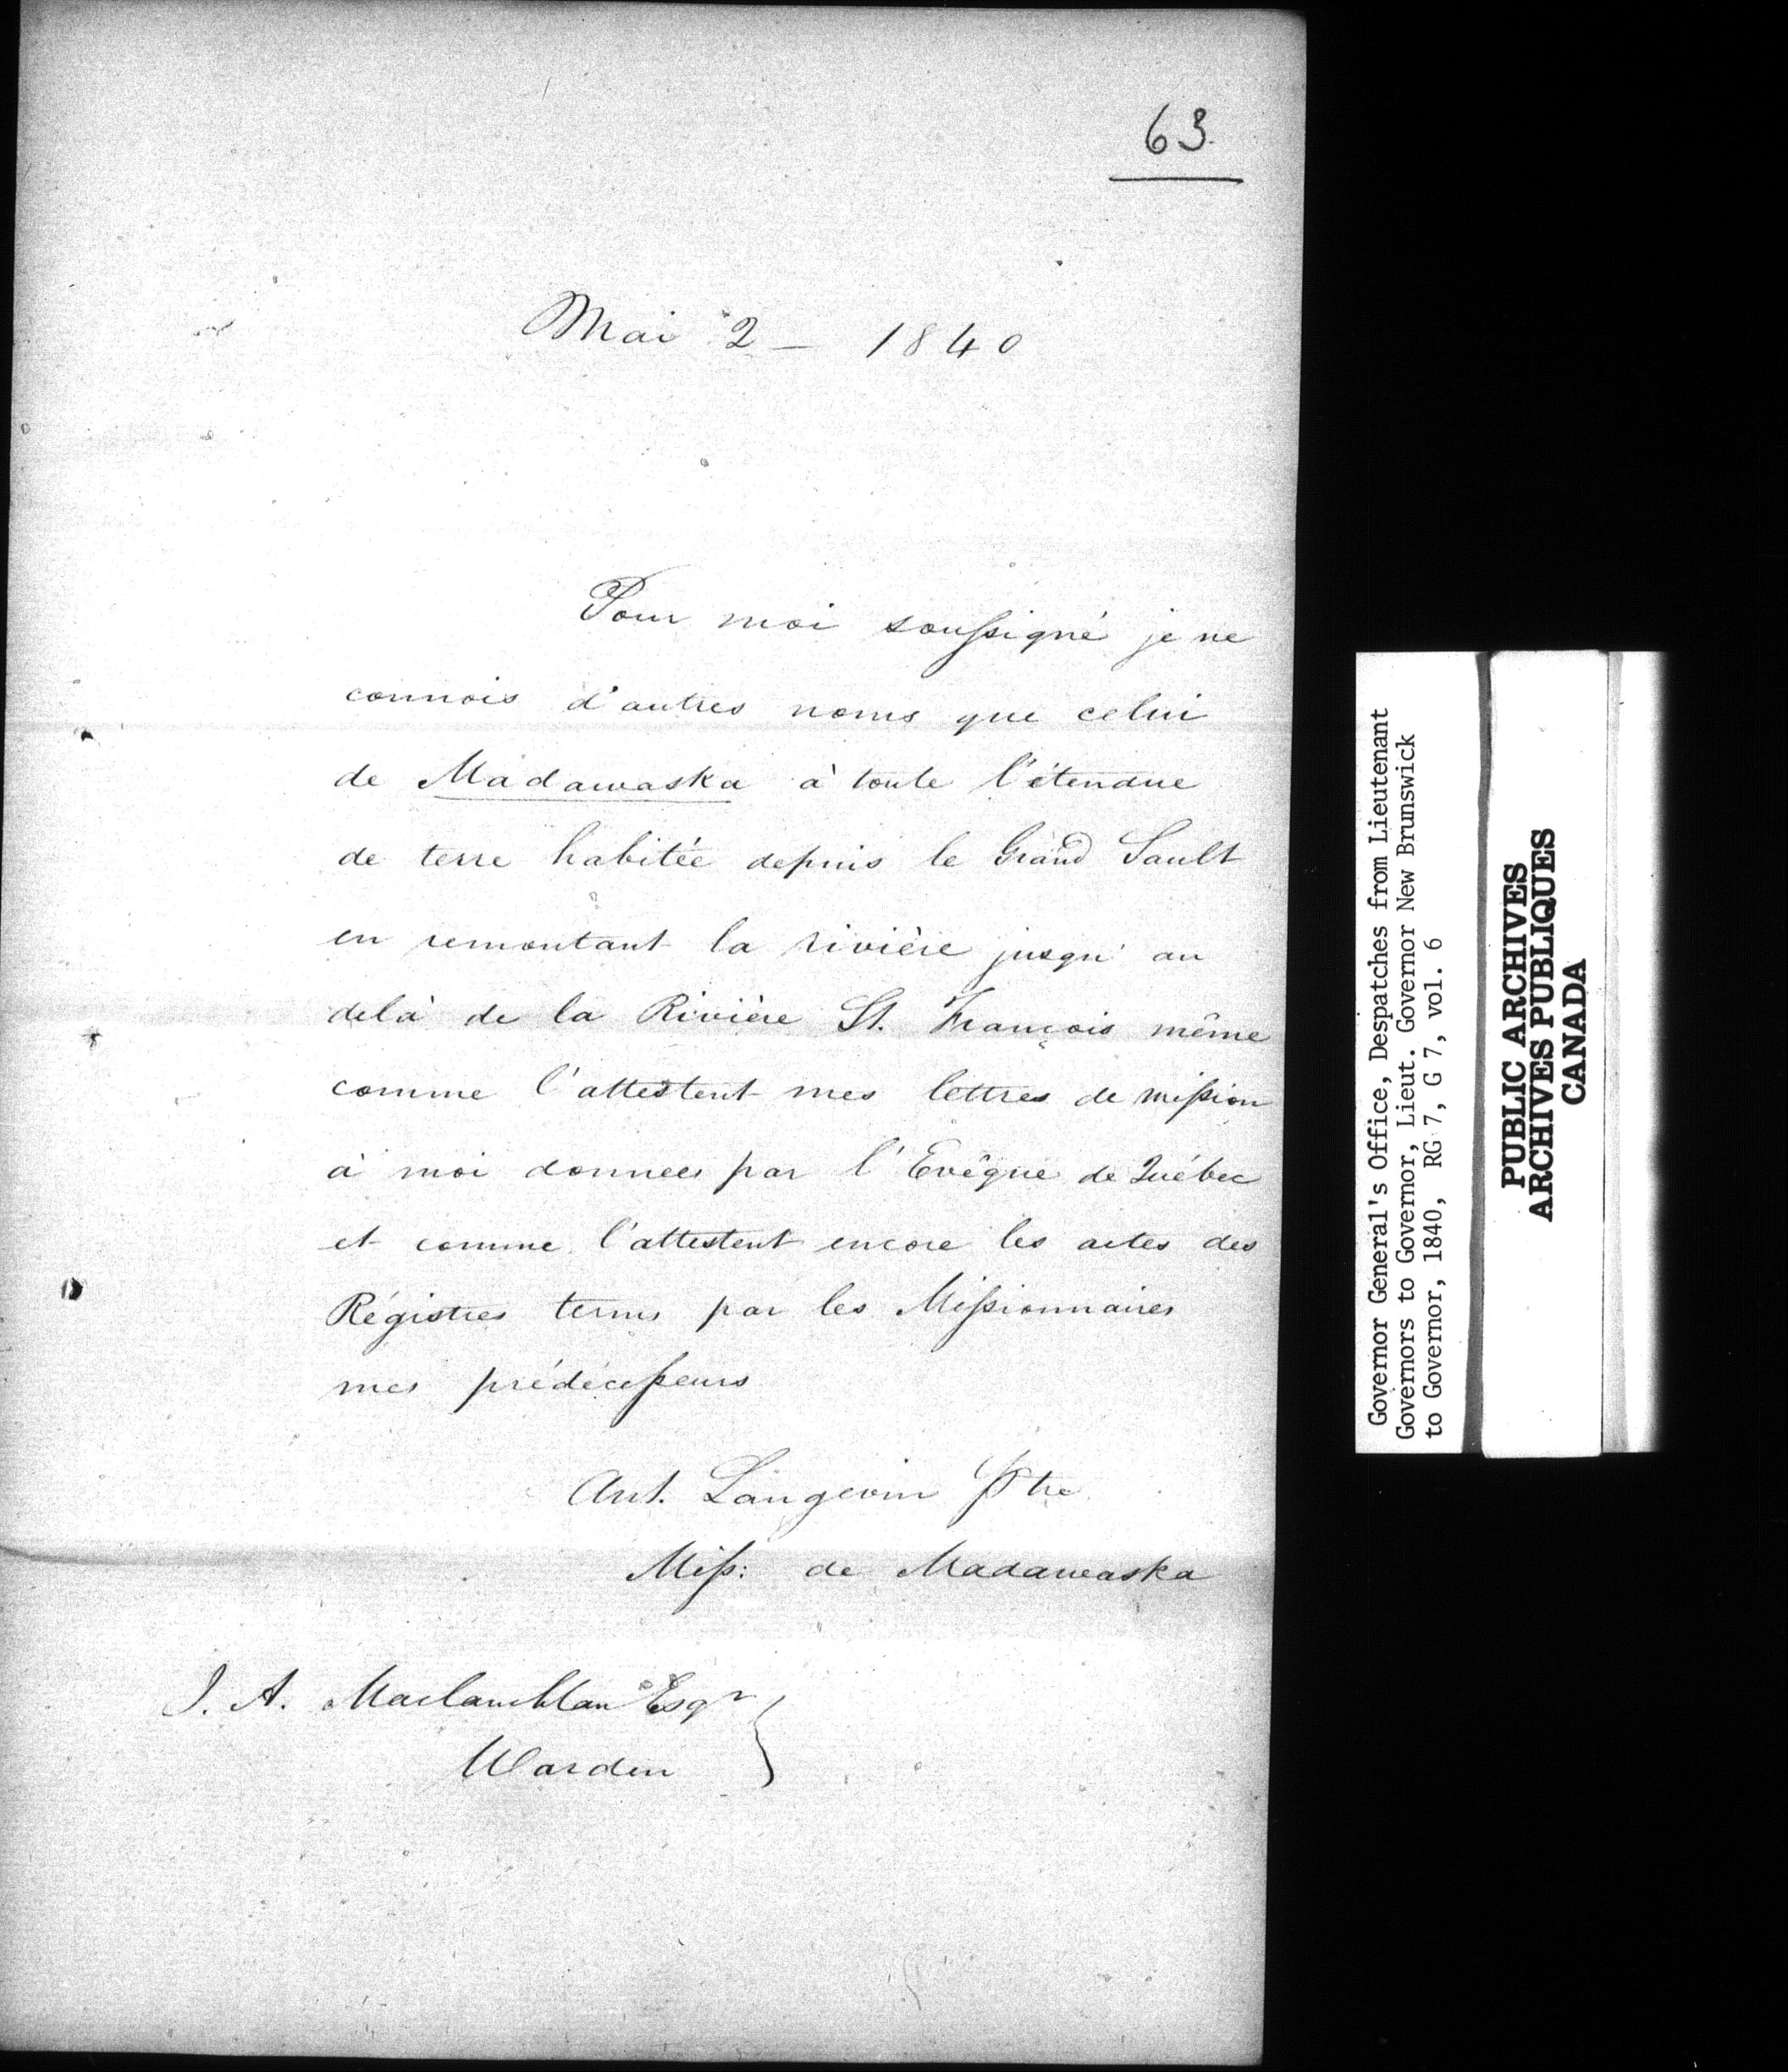 63.
Mai 2 — 1840
Pour moi soussigné je ne
connois d'autres noms que celui
de Madawaska à toute l'étendue
de terre habitée depuis le Grand Sault
en remontant la rivière jusqu'au
delà de la Rivière St. François même
comme l'attestent mes lettres de mission
à moi données par l'Evêque de Québec
et comme l'attestent encore les actes des
Régistres tenus par les Missionnaires
mes prédécesseurs
Ant. Langevin Ptre
Miss: de Madawaska
J. A. Maclauchlan Esqr
Warden
Governor General's Office, Despatches from Lieutenant
Governors to Governor, Lieut. Governor New Brunswick
to Governor, 1840, RG 7, G 7, vol. 6
PUBLIC ARCHIVES
ARCHIVES PUBLIQUES
CANADA